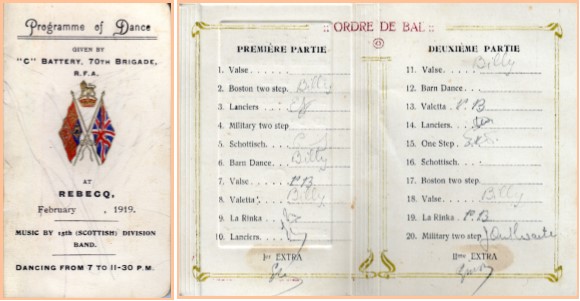 Programme of Dance
GIVEN BY
"C" BATTERY, 70TH BRIGADE,
R.F.A.
AT
REBECQ,
February , 1919.
MUSIC BY 15th (SCOTTISH) DIVISION
BAND.
DANCING FROM 7 TO 11-30 P.M.
:: ORDRE DE BAL ::
PREMIÈRE PARTIE
1. Valse . . . . .
2. Boston two step. Billy
3. Lanciers . . . .
4. Military two step
5. Schottisch. . . .
6. Barn Dance. . . . Billy
7. Valse . . . . P.B
8. Valetta . . . . Billy
9. La Rinka . .
10. Lanciers. . . .
1er EXTRA
DEUXIÈME PARTIE
11. Valse. . . . . Billy
12. Barn Dance. . .
13. Valetta . P.B
14. Lanciers. . . .
15. One Step .
16. Schottisch. . . .
17. Boston two step.
18. Valse . . . . Billy
19. La Rinka . P.B
20. Military two step
IIme EXTRA